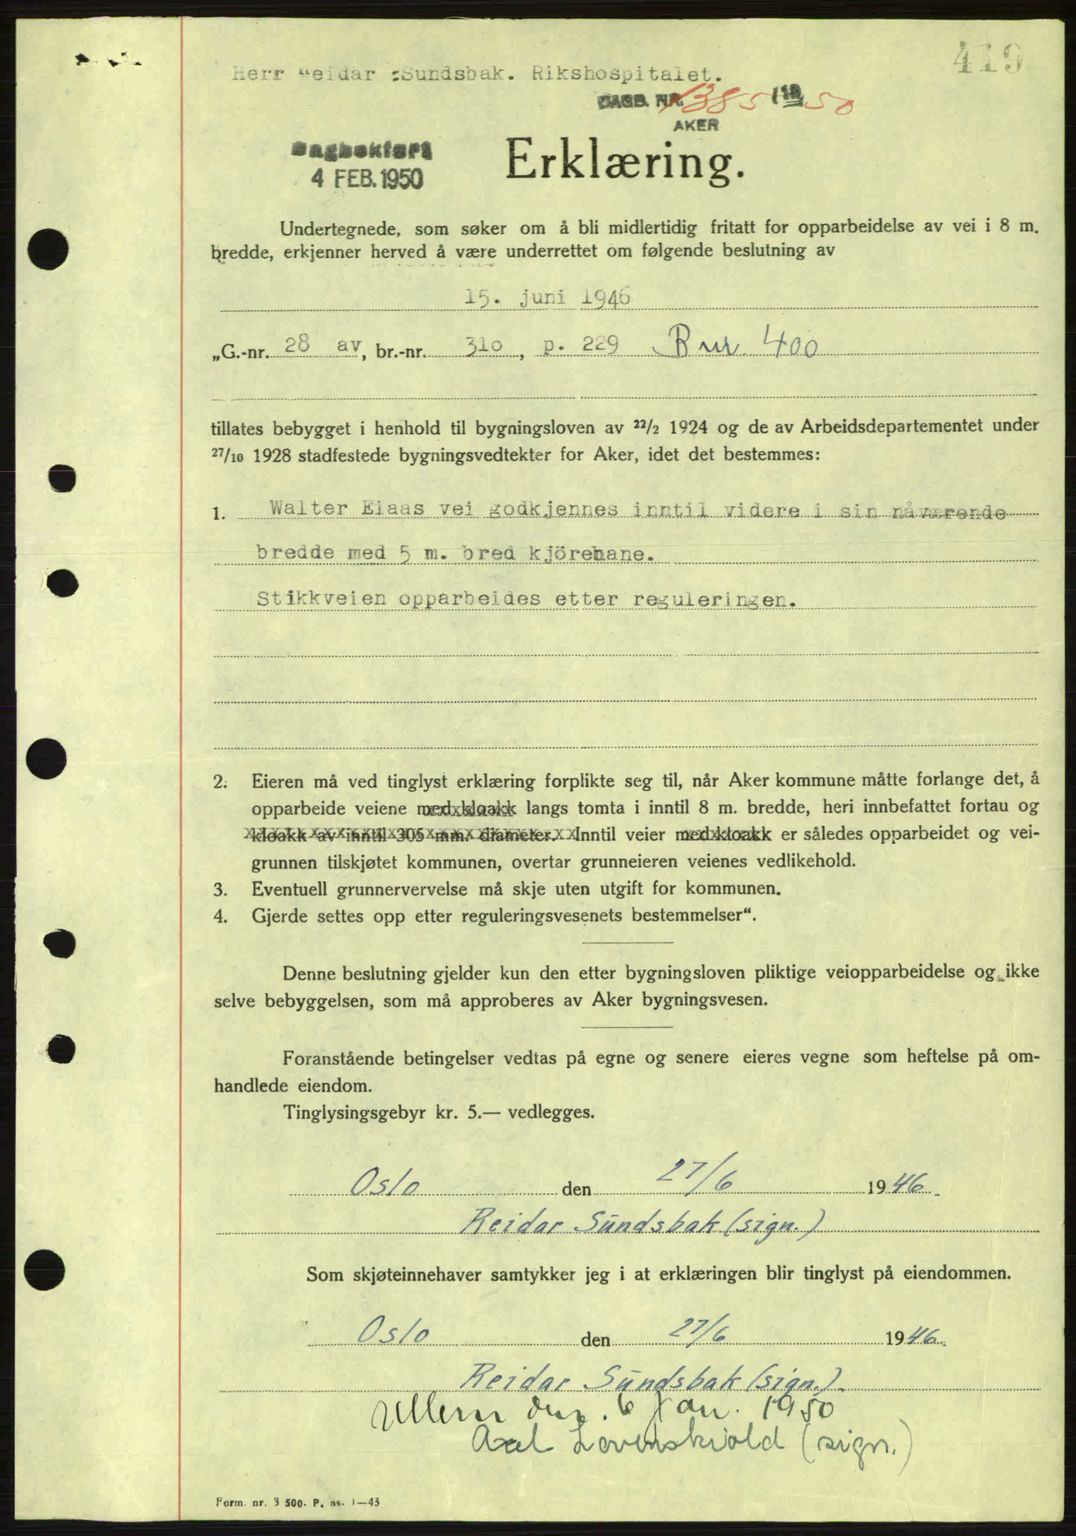 419
Herr Reidar Sundsbak. Rikshospitalet.
DAGB. NR. 1385 19 50
AKER
Dagbokført
4 FEB. 1950
Erklæring.
Undertegnede, som søker om å bli midlertidig fritatt for opparbeidelse av vei i 8 m.
bredde, erkjenner herved å være underrettet om følgende beslutning av
15. juni 1946
„G.-nr. 28 av, br.-nr. 310, p. 229 Bnr. 400
tillates bebygget i henhold til bygningsloven av 22/2 1924 og de av Arbeidsdepartementet under
27/10 1928 stadfestede bygningsvedtekter for Aker, idet det bestemmes:
1. Walter Eiaas vei godkjennes inntil videre i sin nåværende
bredde med 5 m. bred kjörebane.
Stikkveien opparbeides etter reguleringen.
2. Eieren må ved tinglyst erklæring forplikte seg til, når Aker kommune måtte forlange det, å
opparbeide veiene med kloakk langs tomta i inntil 8 m. bredde, heri innbefattet fortau og
kloakk av inntil 305 mm. diameter. Inntil veier med kloakk er således opparbeidet og vei-
grunnen tilskjøtet kommunen, overtar grunneieren veienes vedlikehold.
3. Eventuell grunnervervelse må skje uten utgift for kommunen.
4. Gjerde settes opp etter reguleringsvesenets bestemmelser“.
Denne beslutning gjelder kun den etter bygningsloven pliktige veiopparbeidelse og ikke
selve bebyggelsen, som må approberes av Aker bygningsvesen.
Foranstående betingelser vedtas på egne og senere eieres vegne som heftelse på om-
handlede eiendom.
Tinglysingsgebyr kr. 5.— vedlegges.
Oslo den 27/6 1946.
Reidar Sundsbak (sign.)
Som skjøteinnehaver samtykker jeg i at erklæringen blir tinglyst på eiendommen.
Oslo den 27/6 1946.
Reidar Sundsbak (sign.).
Ullern den. 6 Jan. 1950
Axel Løvenskiold (sign.)
Form. nr. 3 500. P. as. 1—45